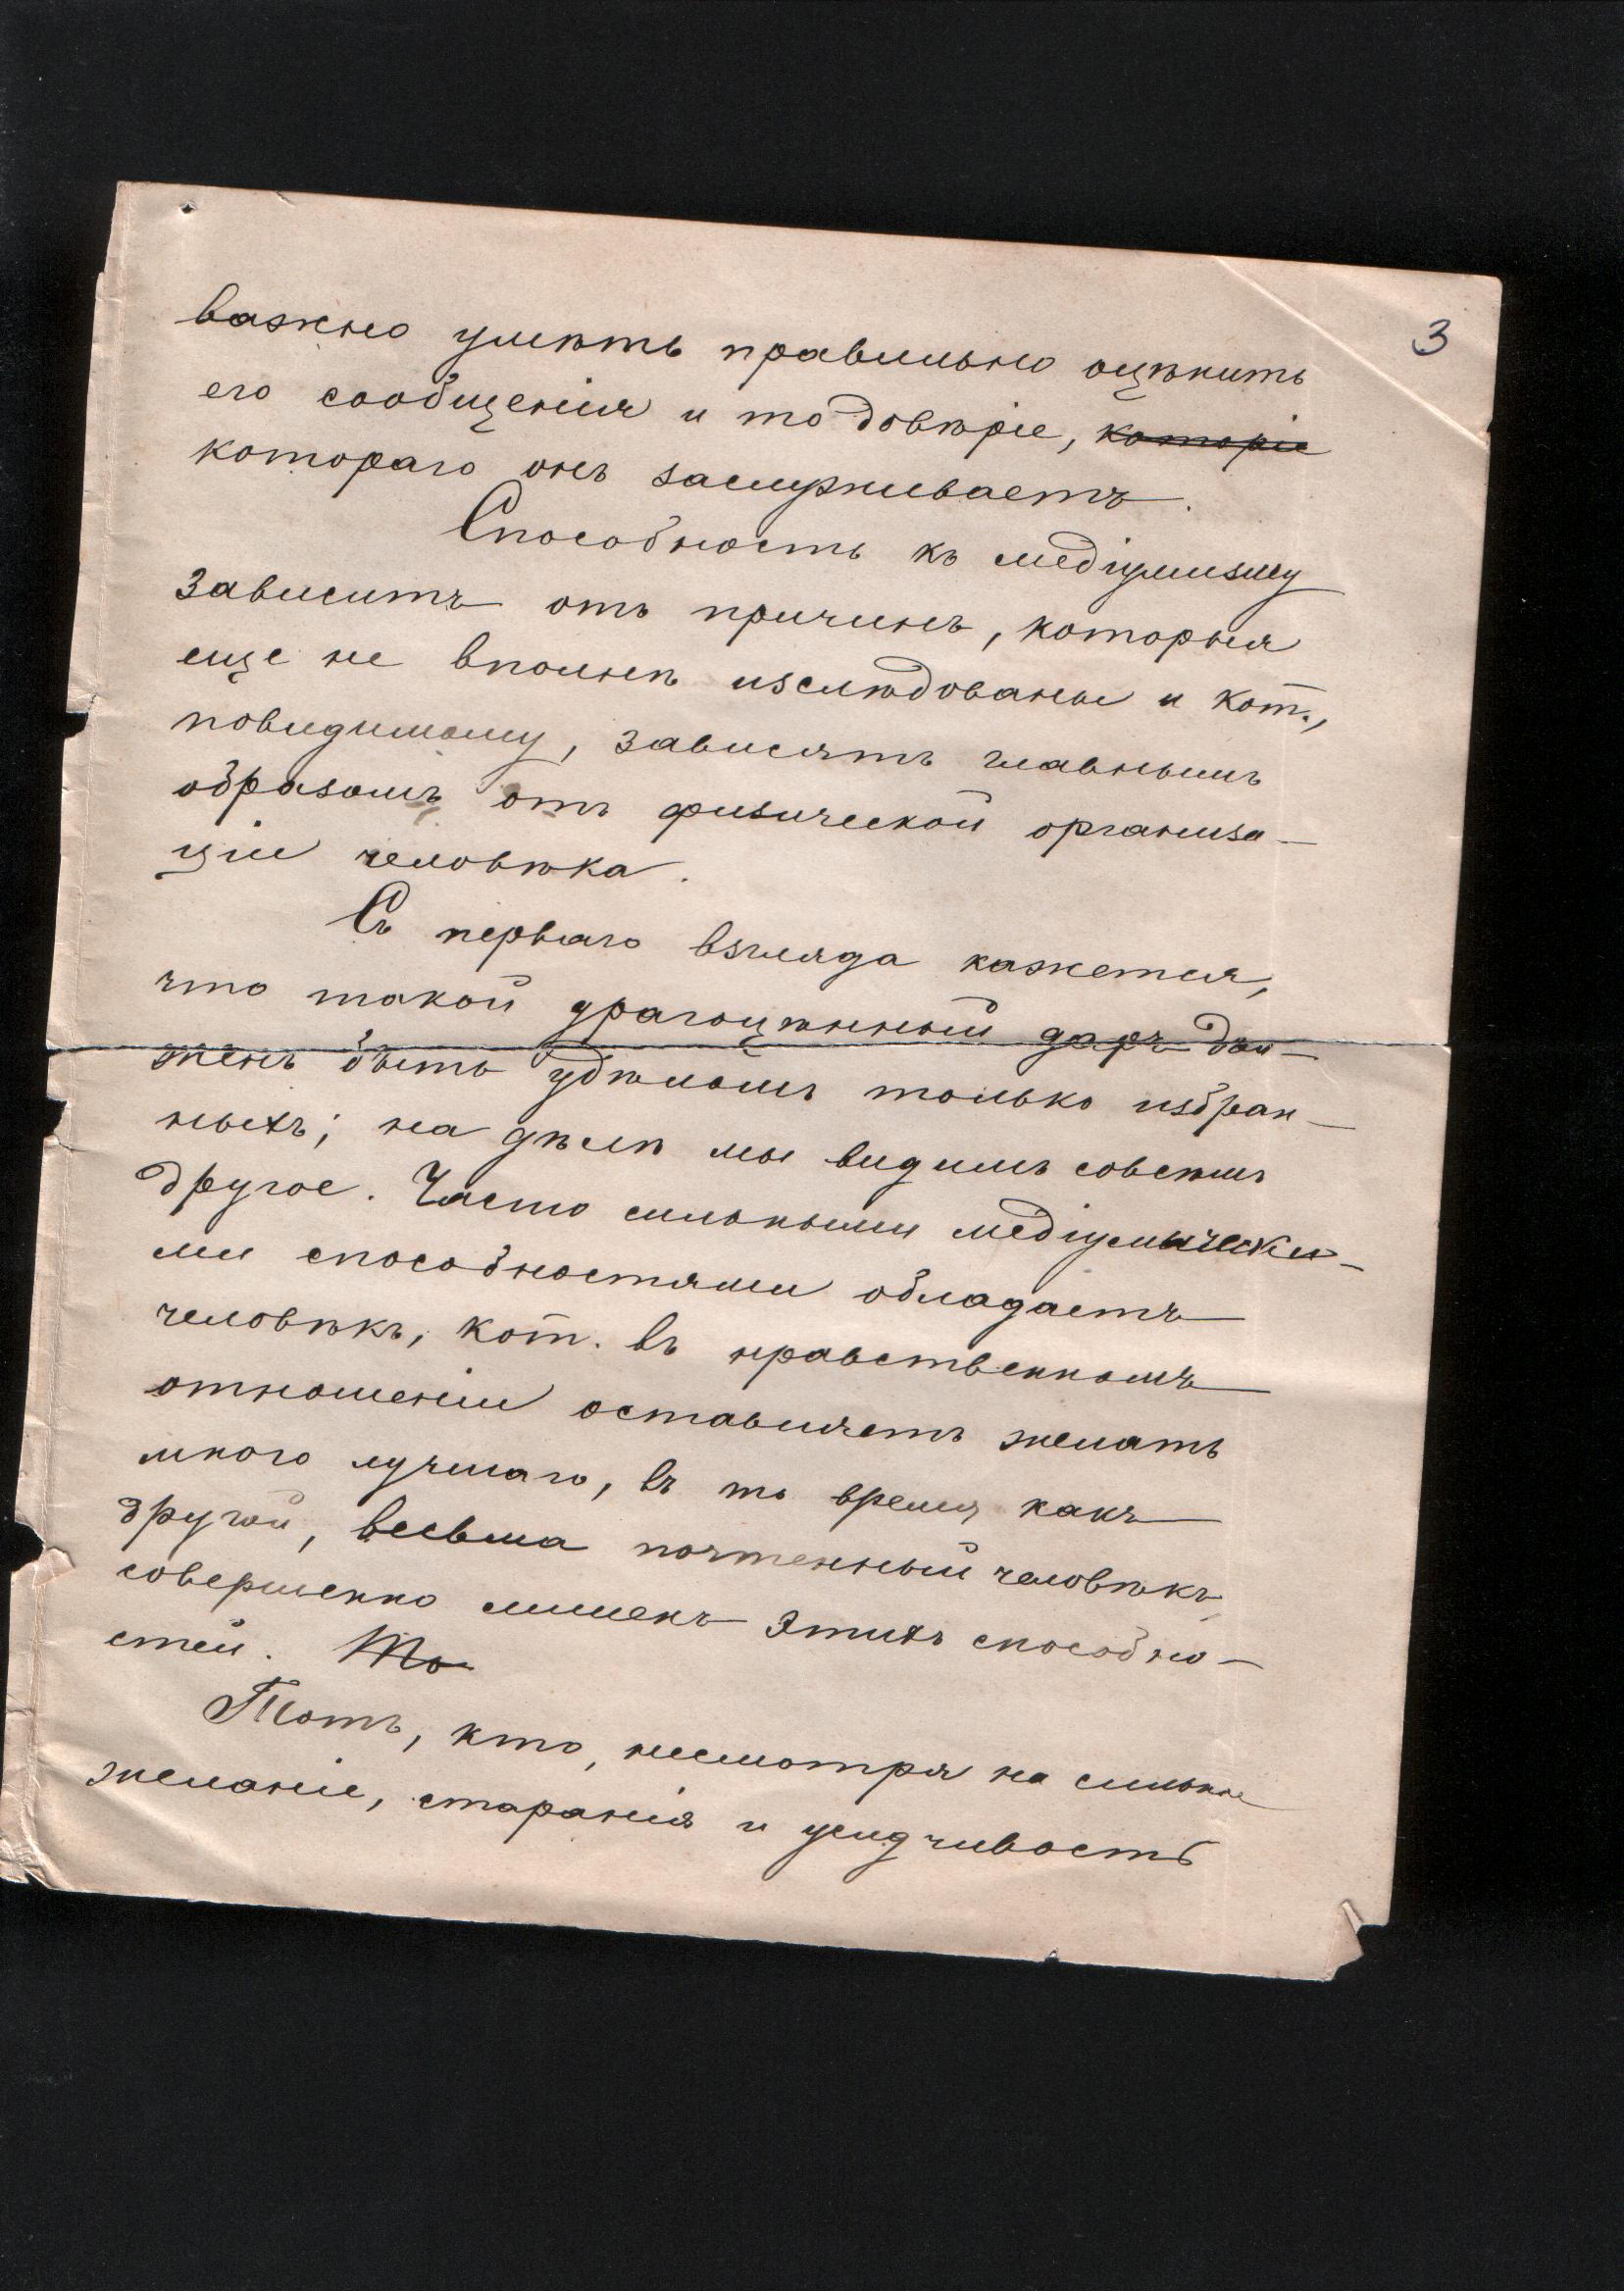 3
важно умѣть правильно оцѣнить
его сообщенія и то довѣріе, ~~которіе~~
котораго онъ заслуживаетъ.
Способность къ медіумизму
зависитъ отъ причинъ, которыя
еще не вполнѣ изслѣдованы и кот.,
повидимому, зависятъ главнымъ
образомъ отъ физической организа-
ціи человѣка.
Съ перваго взгляда кажется,
что такой драгоцѣнный даръ дол-
женъ быть удѣломъ только избран-
ныхъ; на дѣлѣ мы видимъ совсѣмъ
другое. Часто сильными медіумически-
ми способностями обладаетъ
человѣкъ, кот. въ нравственномъ
отношеніи оставляетъ желать
много лучшаго, въ то время какъ
другой, весьма почтенный человѣкъ,
совершенно лишенъ этихъ способно-
стей. ~~То~~
Тотъ, кто, несмотря на сильное
желаніе, старанія и усидчивость